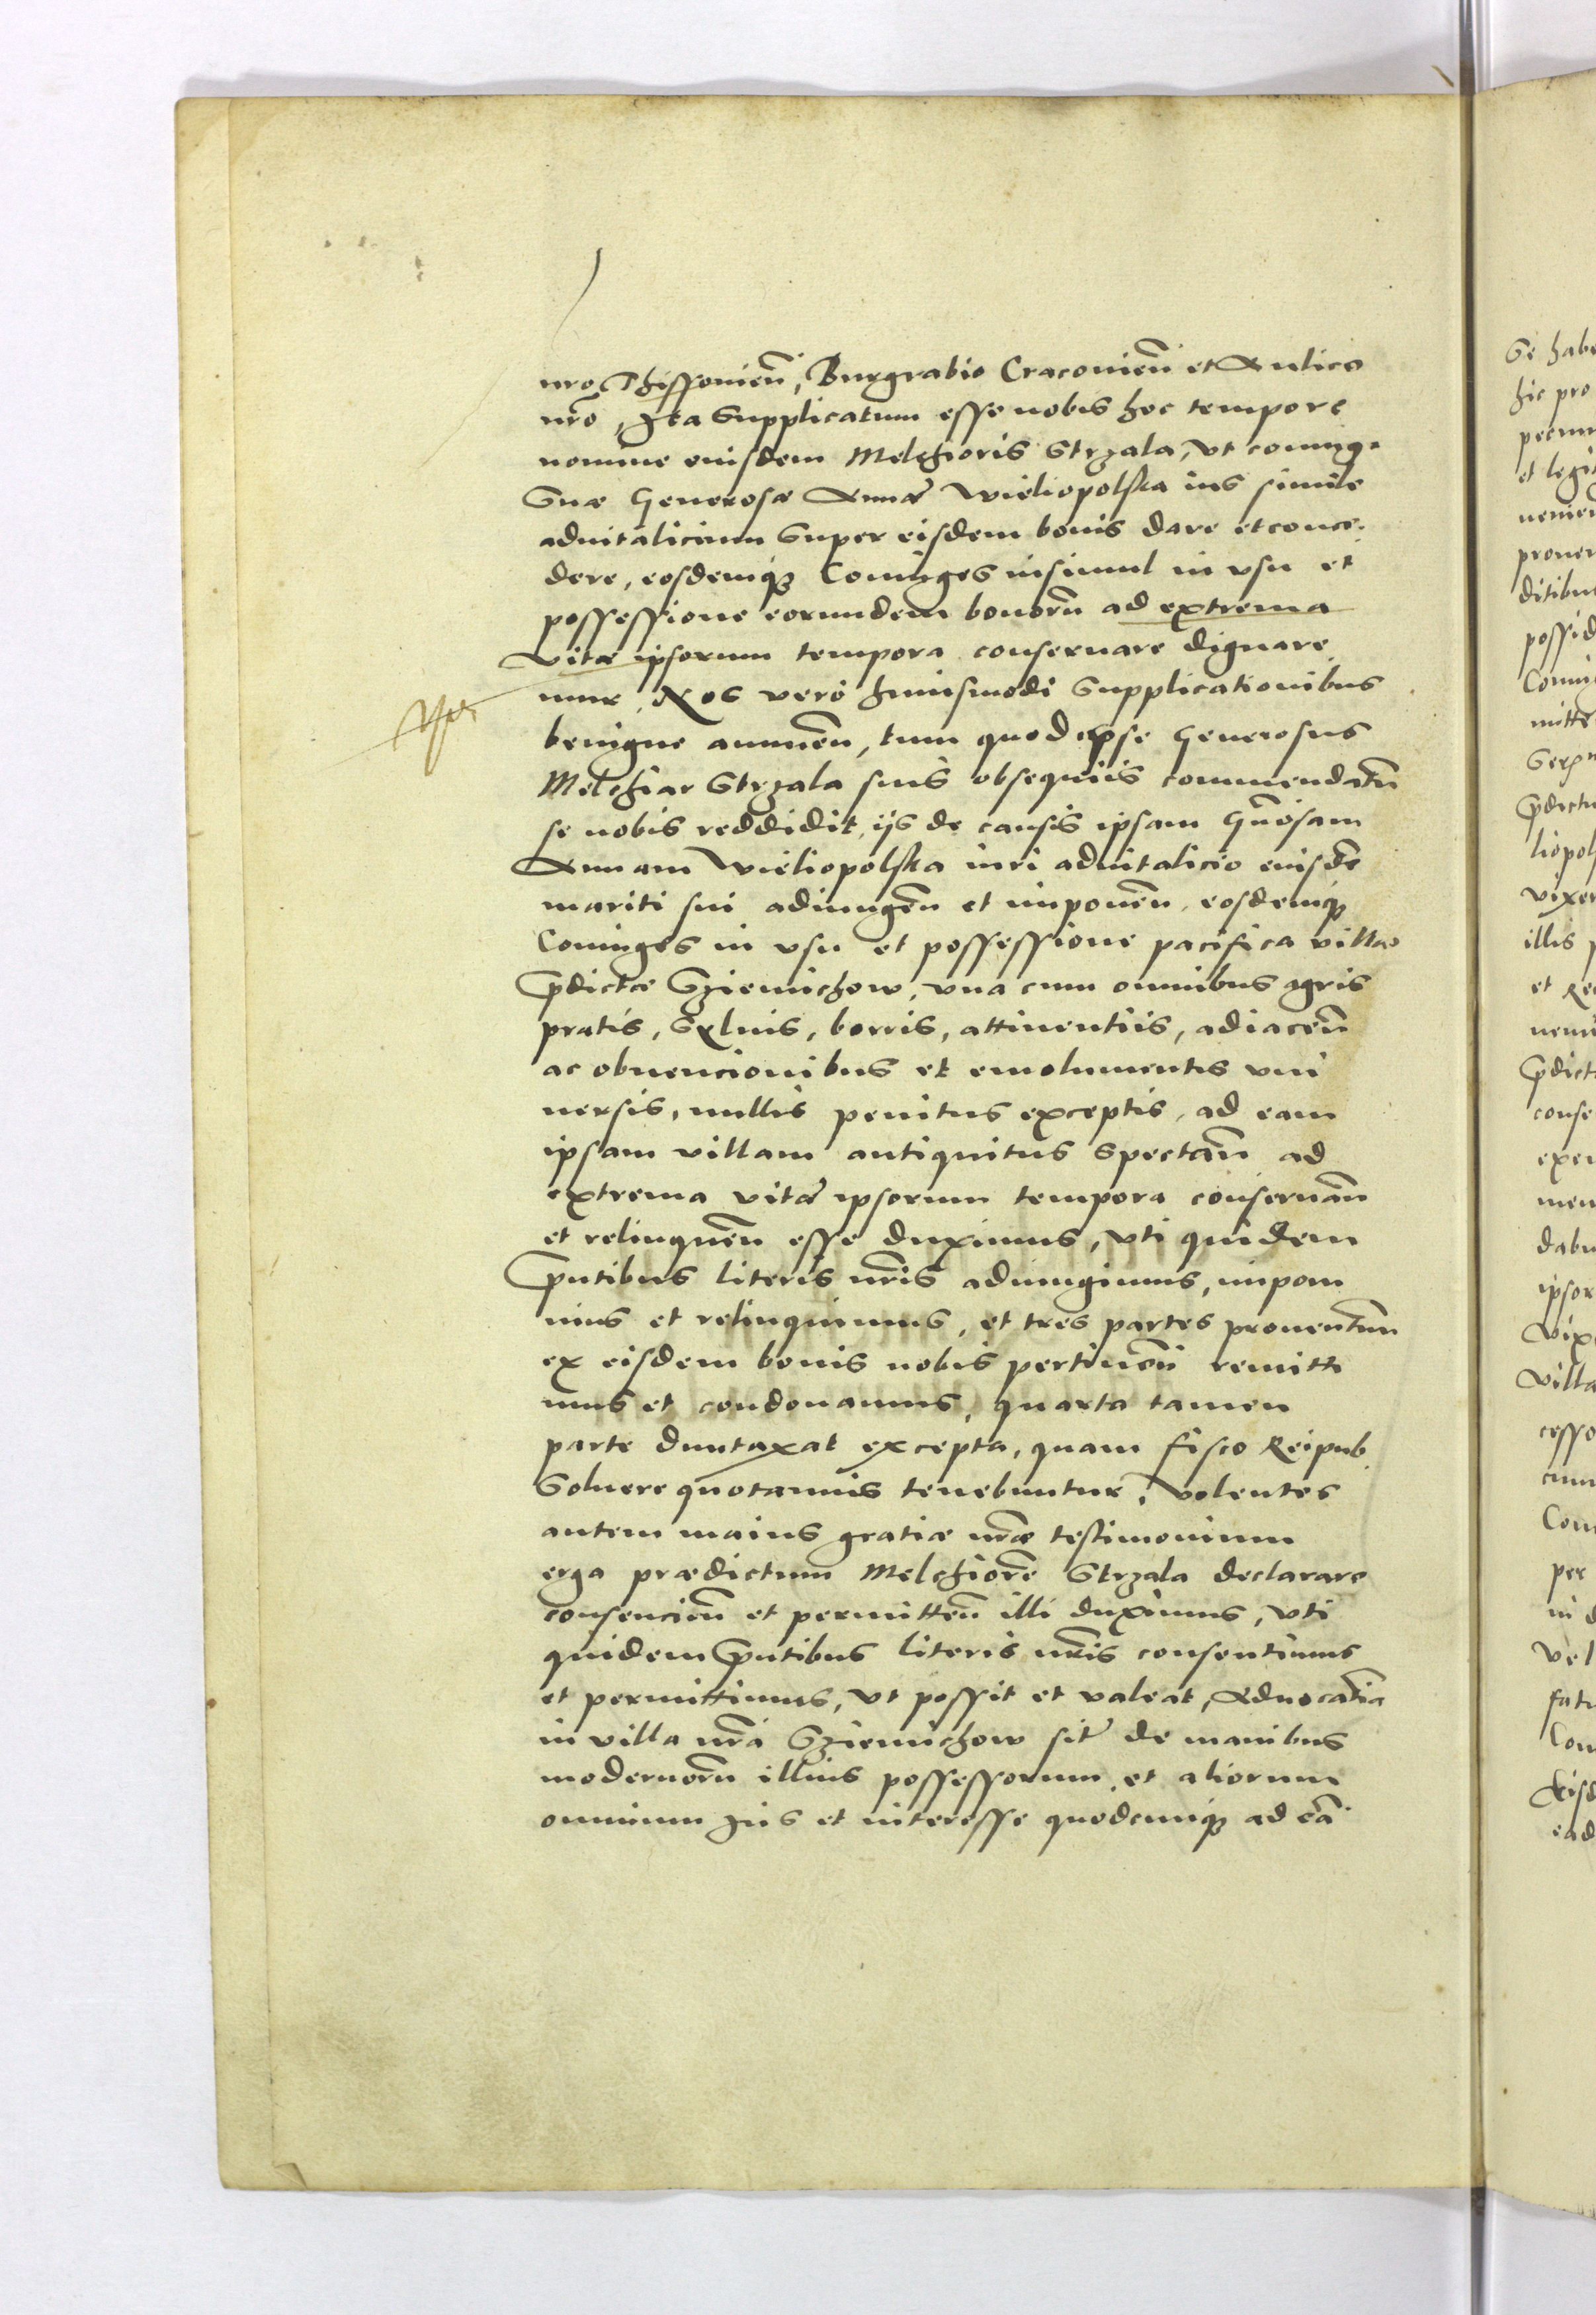 nro Thissonieñ, Burgrabio Cracovieñ et Aulico
nrõ, Ita supplicatum esse nobis hoc tempore
nomine eiusdem Melchioris Strzala, vt coniugi
suæ Generosæ Annæ Wieliopolska ius simile
aduitalicium super eisdem bonis dare et conce
dere, eosdemq Coniuges insimul in vsu et
possessione eorundem bonorũ ad extrema
vitæ ipsorum tempora conseruare dignare
mur, Nos verò huiusmodi supplicationibus
benigne annueñ, tum quod ipse Generosus
Melchiar Strzala suis obsequiis commendatũ
se nobis reddidit, ijs de causis ipsam Gñosam
Annam Wieliopolska iuri aduitalicio eiusdẽ
mariti sui adiungeñ et imponeñ, eosdemq
Coniuges in vsu et possessione pacifica villæ
p̃dictæ Sziemichow, vna cum omnibus agris
pratis, syluis, borris, attinentiis, adiaceñ
ac obuencionibus et emolumentis vni
uersis, nullis penitus exceptis, ad eam
ipsam villam antiquitus spectañ ad
extrema vitæ ipsorum tempora conseruañ
et relinqueñ esse duximus, vti quidem
p̃ntibus literis nr̃is adiungimus, imponi
mus et relinquimus, et tres partes prouentuũ
ex eisdem bonis nobis pertineñ remitti
mus et condonamus, quarta tamen
parte duntaxat excepta, quam fisco Reipub
soluere quotannis tenebuntur, Volentes
autem maius gratiæ nr̃æ testimonium
erga prædictum Melchiorẽ Strzala declarare
consencieñ et permitteñ illi duximus, vti
quidem p̃ntibus literis nr̃is consentimus
et permittimus, vt possit et valeat, Aduocatiã
in villa nr̃a Sziemichow sit̃ de manibus
modernorũ illius possessorum, et aliorum
omnium Ius et interesse quodcunq ad eã